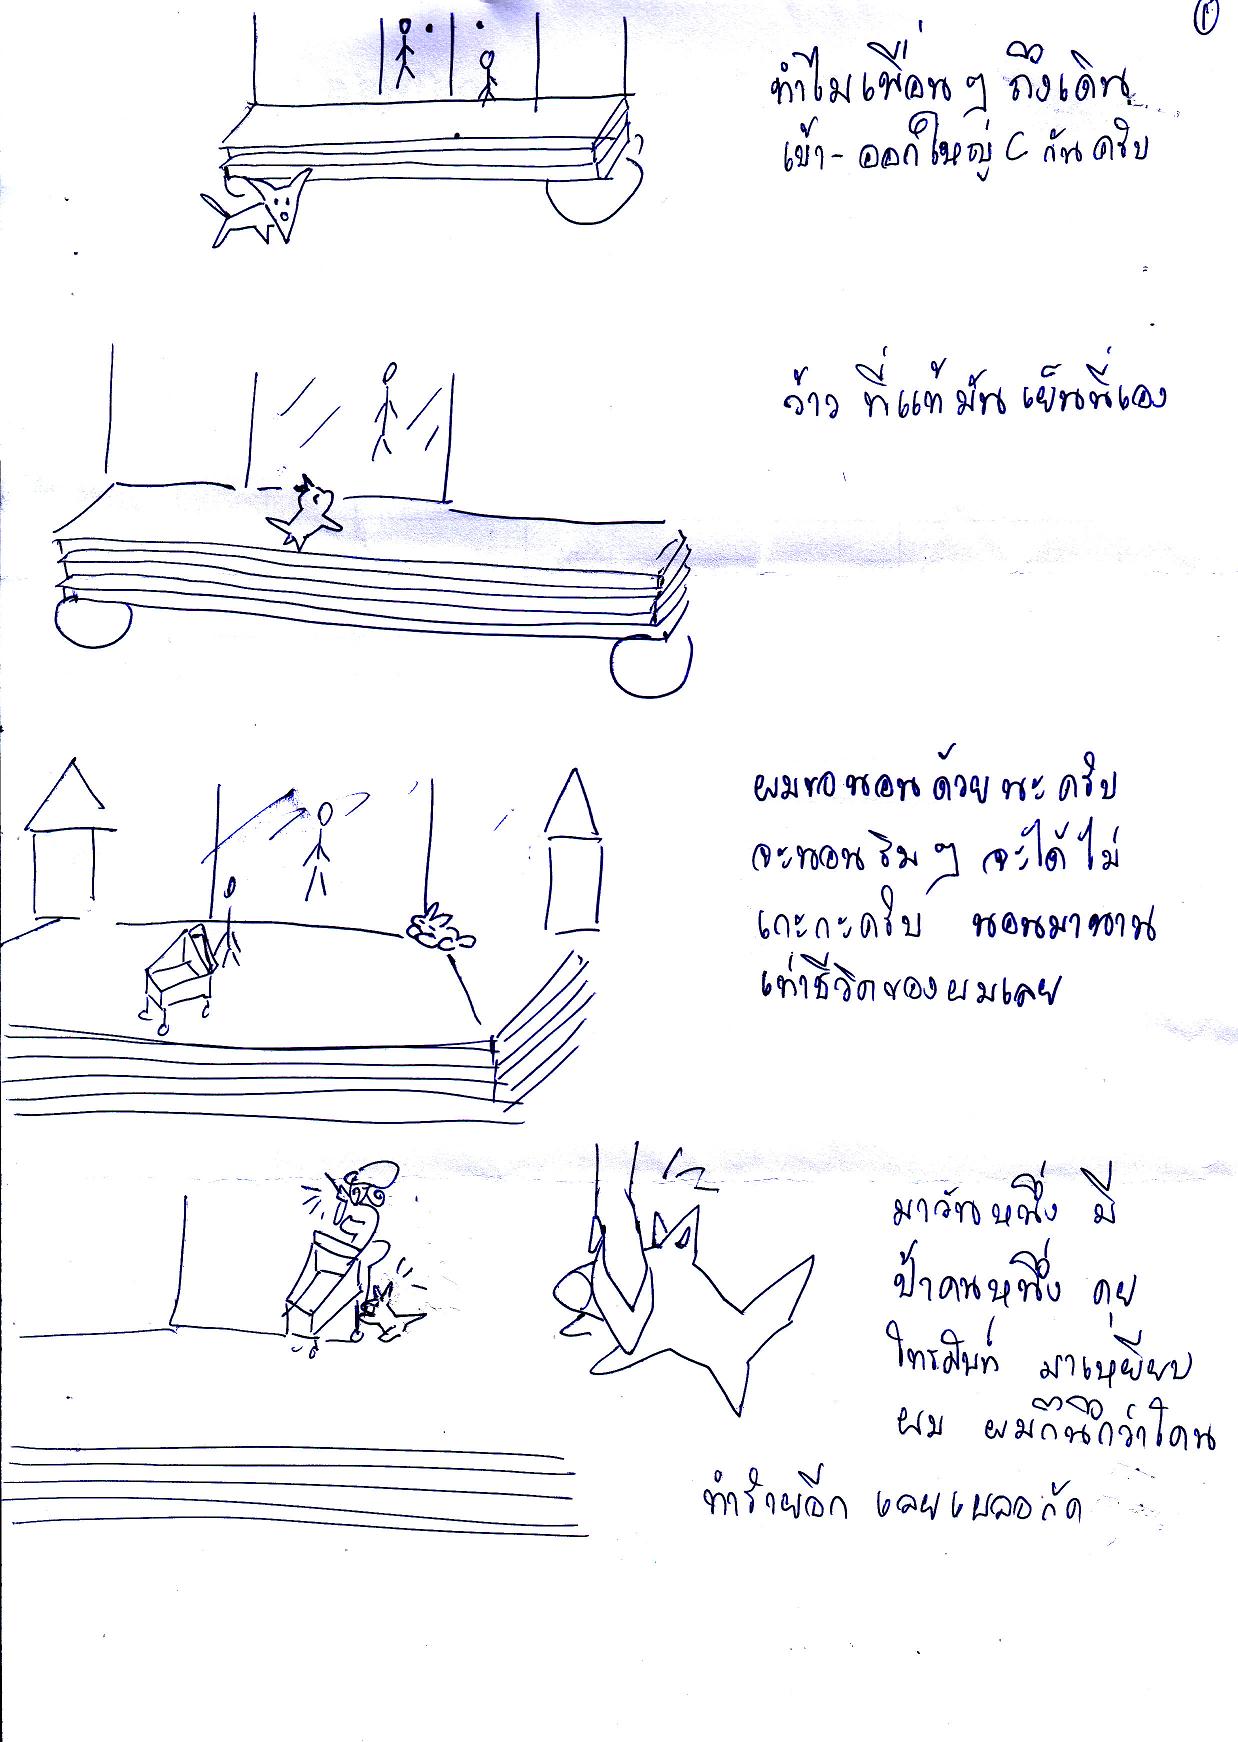 ๑
ทำไมเพื่อน ๆ ถึงเดิน
เข้า-ออกใหญ่ C กันครับ
ว้าว ที่แท้มันเย็นนี่เอง
ผมขอนอนด้วยนะครับ
จะนอนริม ๆ จะได้ไม่
เกะกะครับ นอนมานาน
เท่าชีวิตของผมเลย
มาวันหนึ่ง มี
ป้าคนหนึ่ง คุย
โทรศัพท์ มาเหยียบ
ผม ผมก็นึกว่าโดน
ทำร้ายอีก เลยเผลอกัด